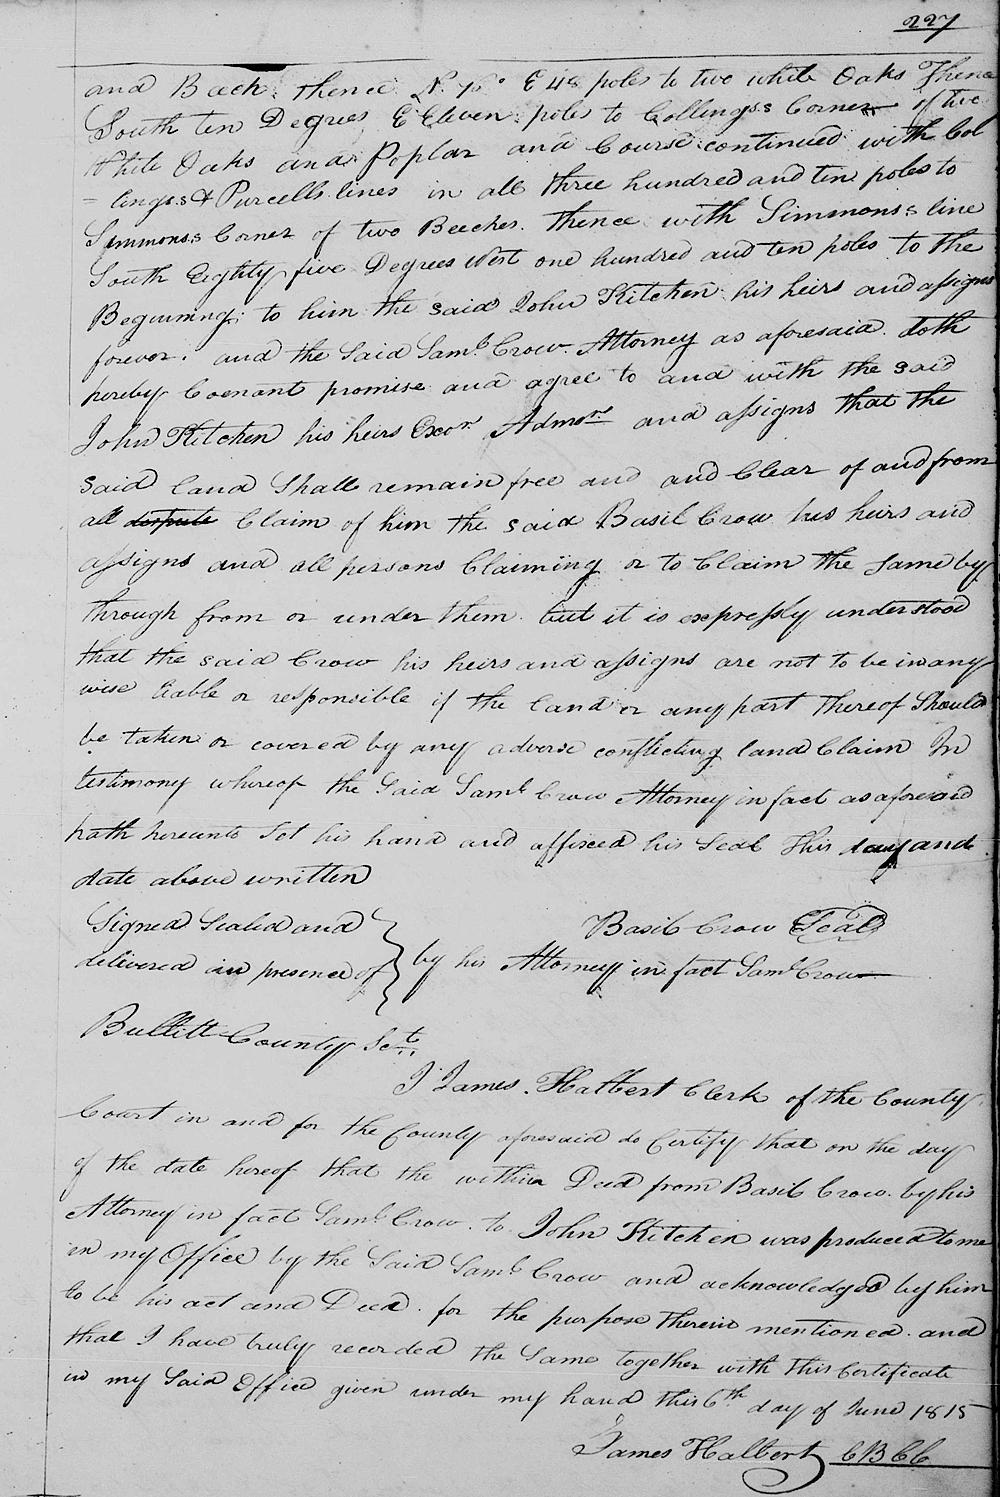 227
and Beech. thence N. 76° E 48 poles to two white Oaks Thence
South ten Degrees E Eleven poles to Collings:s Corner of two
White Oaks and Poplar and Course continued with Col
= lings:s & Purcells lines in all three hundred and ten poles to
Simmons:s Corner of two Beeches. thence with Simmons:s line
South Eighty five Degrees West one hundred and ten poles to the
Beginning: to him the said John Kitchen his heirs and assigns
forever. and the Said Saml. Crow. Attorney as aforesaid. doth
hereby Covenant promise and agree to and with the said
John Kitchen his heirs Exors. Admors and assigns that the
said land Shall remain free and and Clear of and from
all dispute Claim of him the said Basil Crow his heirs and
assigns and all persons Claiming or to Claim the same by
through from or under them. but it is expressly understood
that the said Crow his heirs and assigns are not to be in any
wise liable or responsible if the land or any part thereof Should
be taken or covered by any adverse conflicting land Claim In
testimony whereof the Said Saml. Crow Attorney in fact as aforesaid
hath hereunto Set his hand and affixed his Seal This day and
date above written
Signed Sealed and
delivered in presence of
Basil Crow Seal
by his Attorney in fact Saml. Crow
Bullitt County Sct.
I James. Halbert Clerk of the County
Court in and for the County aforesaid do Certify that on the day
of the date hereof that the within Deed from Basil Crow. by his
Attorney in fact Saml. Crow. to John Kitchen was produced to me
in my Office by the Said Saml. Crow and acknowledged by him
to be his act and Deed. for the purpose therein mentioned. and
that I have truly recorded the Same together with this Certificate
in my Said Office given under my hand this 6th day of June 1815
James Halbert CBCC